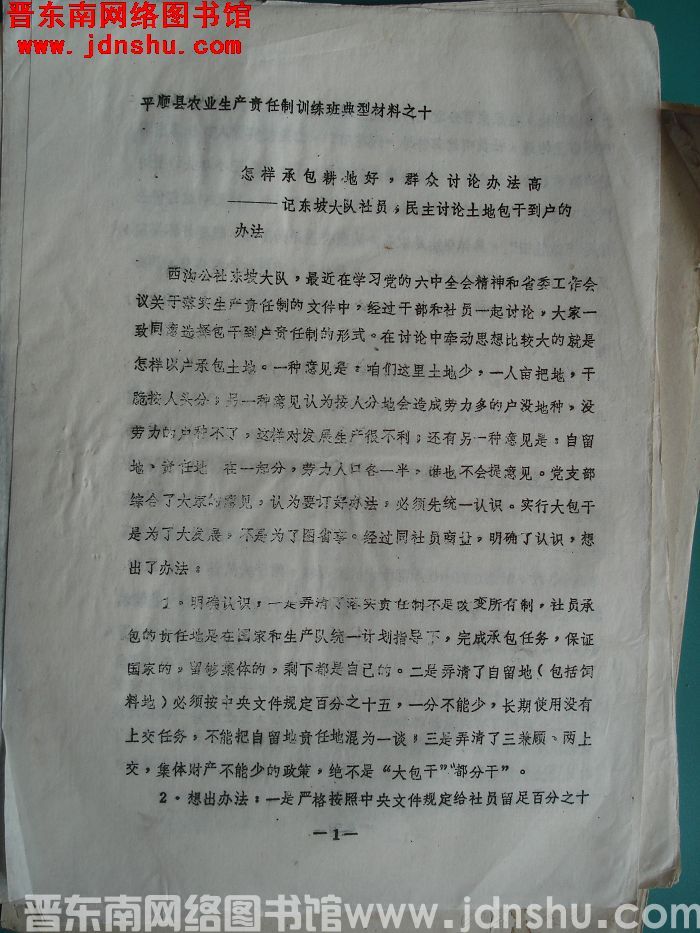 晋东南网络图书馆
www.jdnshu.com
平顺县农业生产责任制训练班典型材料之十
怎样承包耕地好，群众讨论办法高
——记东坡大队社员，民主讨论土地包干到户的
办法
西沟公社东坡大队，最近在学习党的六中全会精神和省委工作会
议关于落实生产责任制的文件中，经过干部和社员一起讨论，大家一
致同意选择包干到户责任制的形式。在讨论中牵动思想比较大的就是
怎样以户承包土地。一种意见是：咱们这里土地少，一人亩把地，干
脆按人头分；另一种意见认为按人分地会造成劳力多的户没地种，没
劳力的户种不了，这样对发展生产很不利；还有另一种意见是：自留
地、责任地 在一起分，劳力人口各一半，谁也不会提意见。党支部
综合了大家的意见，认为要订好办法，必须先统一认识。实行大包干
是为了大发展，不是为了图省事。经过同社员商量，明确了认识，想
出了办法：
1。明确认识，一是弄清了落实责任制不是改变所有制，社员承
包的责任地是在国家和生产队统一计划指导下，完成承包任务，保证
国家的，留够集体的，剩下都是自己的。二是弄清了自留地（包括饲
料地）必须按中央文件规定百分之十五，一分不能少，长期使用没有
上交任务，不能把自留地责任地混为一谈；三是弄清了三兼顾、两上
交，集体财产不能少的政策，绝不是“大包干”“部分干”。
2·想出办法：一是严格按照中央文件规定给社员留足百分之十
—1—
晋东南网络图书馆www.jdnshu.com